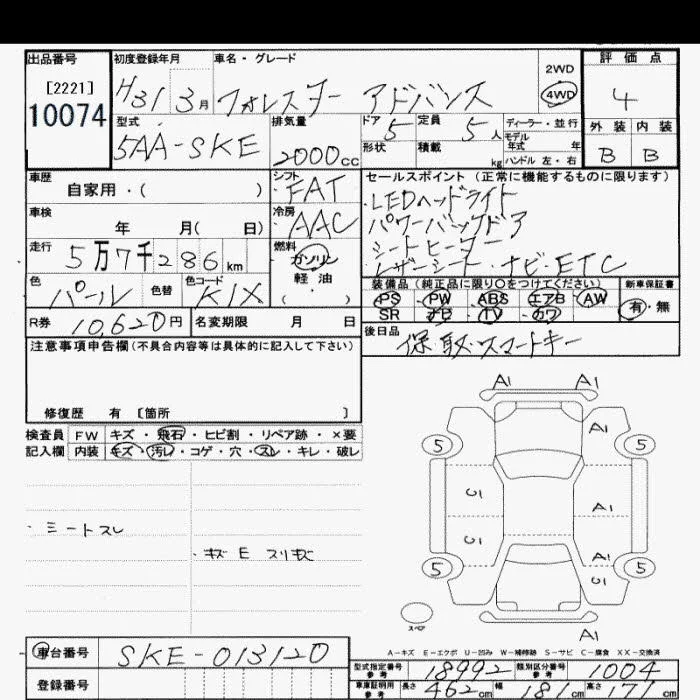 出品番号 初度登録年月 車名・グレード 評価点
[2221] H31 3月 フォレスター アドバンス 2WD 4WD 4
10074
型式 排気量 ドア 定員 ディーラー・並行 外装 内装
5AA-SKE 2000cc 5 5人 モデル年式 年 B B
形状 積載 kg ハンドル 左・右
車歴 シフト セールスポイント (正常に機能するものに限ります)
自家用・( ) FAT ・LEDヘッドライト
車検 冷房 パワーバックドア
年 月( 日) AAC シートヒーター
走行 燃料 ・レザーシート・ナビ・ETC
5万7千286km ガソリン
軽油
( )
色 色替 色コード
パール K1X
装備品 (純正品に限り○をつけてください) 新車保証書
PS PW ABS エアB AW 有・無
SR ナビ TV カワ
R券 10,620円 名変期限 月 日
後日品
保・取・スマートキー
注意事項申告欄(不具合内容等は具体的に記入して下さい)
修復歴 有 [箇所 ]
検査員 FW キズ・飛石・ヒビ割・リペア跡・×要
記入欄 内装 キズ・汚レ・コゲ・穴・スレ・キレ・破レ
・シートスレ
・キズ E スリキズ
A1 A1
A1
5 5
U1 A1
U1 A1
5 U1 5
A1
スペア
A-キズ E-エクボ U-凹み W-補修跡 S-サビ C-腐食 XX-交換済
車台番号 SKE-013120
登録番号
型式指定番号 参考 18992 類別区分番号 参考 1004
車庫証明用 参考 長さ 462cm 幅 181cm 高さ 171cm